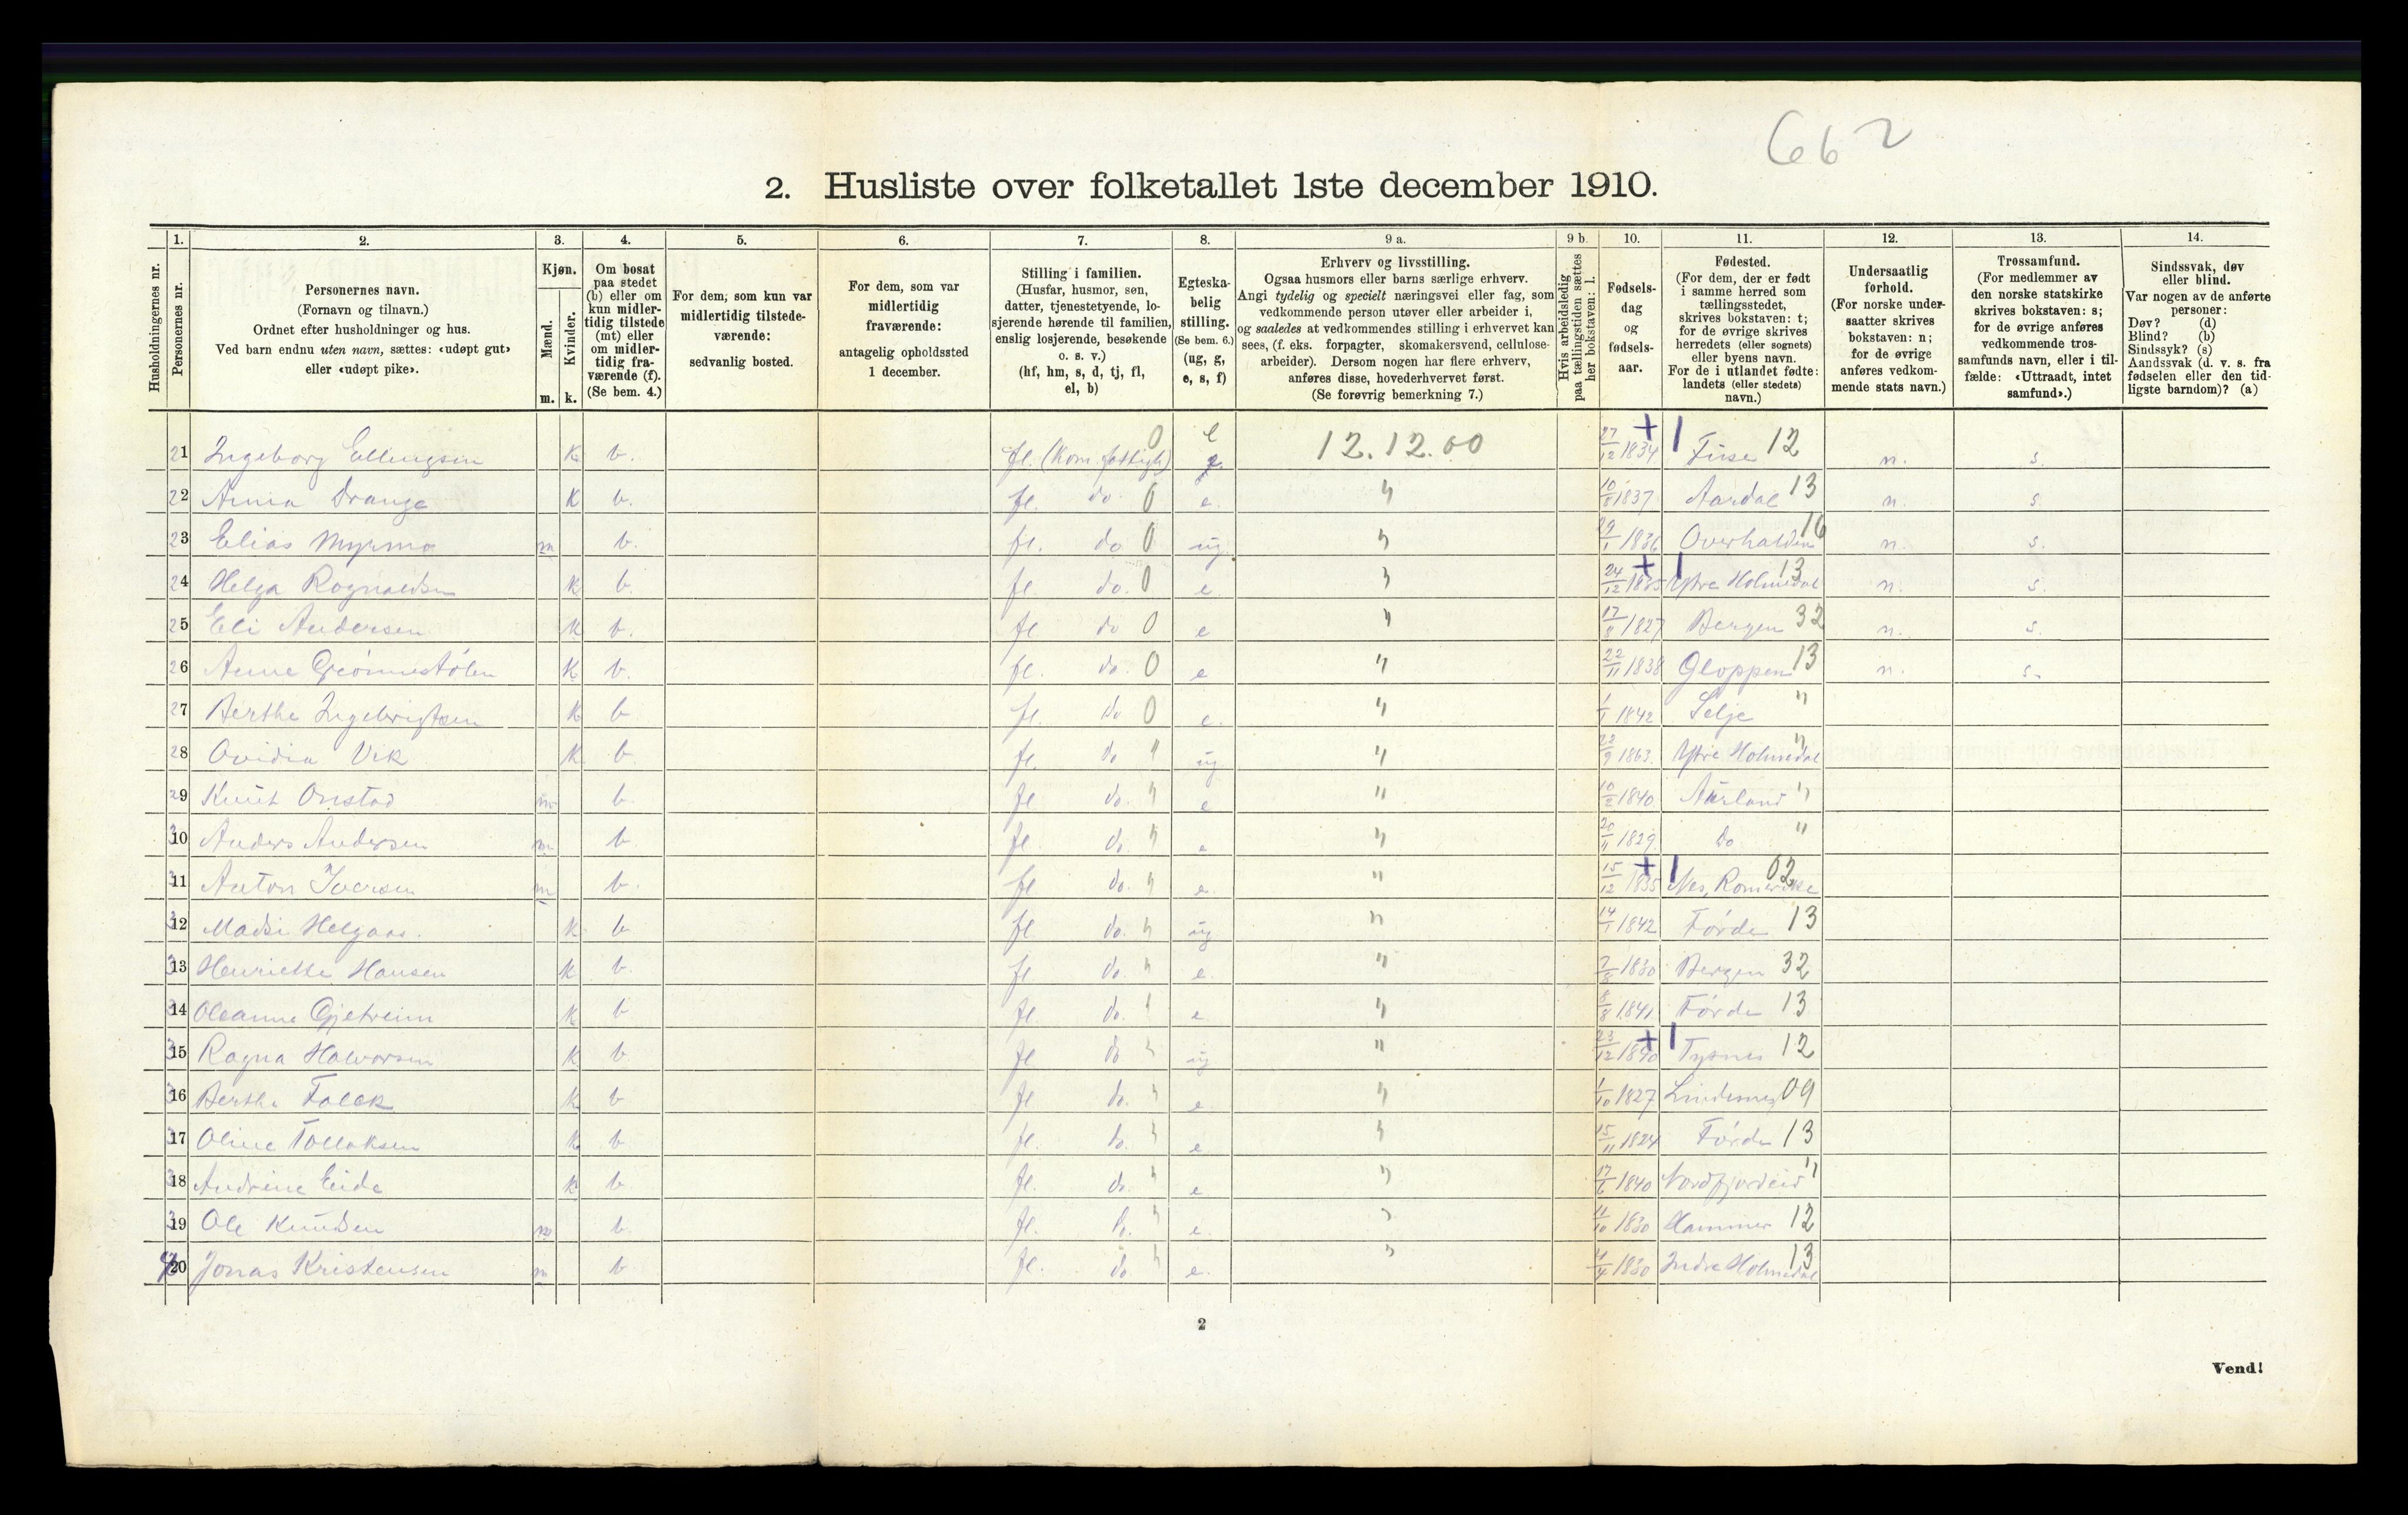 662
2. Husliste over folketallet 1ste december 1910.
1. 2. 3. 4. 5. 6. 7. 8. 9 a. 9 b. 10. 11. 12. 13. 14.
Husholdningernes nr.
Personernes nr.
Personernes navn.
(Fornavn og tilnavn.)
Ordnet efter husholdninger og hus.
Ved barn endnu uten navn, sættes: «udøpt gut»
eller «udøpt pike».
Kjøn.
Mænd.
Kvinder.
m. k.
Om bosat
paa stedet
(b) eller om
kun midler-
tidig tilstede
(mt) eller
om midler-
tidig fra-
værende (f).
(Se bem. 4.)
For dem, som kun var
midlertidig tilstede-
værende:
sedvanlig bosted.
For dem, som var
midlertidig
fraværende:
antagelig opholdssted
1 december.
Stilling i familien.
(Husfar, husmor, søn,
datter, tjenestetyende, lo-
sjerende hørende til familien,
enslig losjerende, besøkende
o. s. v.)
(hf, hm, s, d, tj, fl,
el, b)
Egteska-
belig
stilling.
(Se bem. 6.)
(ug, g,
e, s, f)
Erhverv og livsstilling.
Ogsaa husmors eller barns særlige erhverv.
Angi tydelig og specielt næringsvei eller fag, som
vedkommende person utøver eller arbeider i,
og saaledes at vedkommendes stilling i erhvervet kan
sees, (f. eks. forpagter, skomakersvend, cellulose-
arbeider). Dersom nogen har flere erhverv,
anføres disse, hovederhvervet først.
(Se forøvrig bemerkning 7.)
Hvis arbeidsledig
paa tællingstiden sættes
her bokstaven: l.
Fødsels-
dag
og
fødsels-
aar.
Fødested.
(For dem, der er født
i samme herred som
tællingsstedet,
skrives bokstaven: t;
for de øvrige skrives
herredets (eller sognets)
eller byens navn.
For de i utlandet fødte:
landets (eller stedets)
navn.)
Undersaatlig
forhold.
(For norske under-
saatter skrives
bokstaven: n;
for de øvrige
anføres vedkom-
mende stats navn.)
Trossamfund.
(For medlemmer av
den norske statskirke
skrives bokstaven: s;
for de øvrige anføres
vedkommende tros-
samfunds navn, eller i til-
fælde: «Uttraadt, intet
samfund».)
Sindssvak, døv
eller blind.
Var nogen av de anførte
personer:
Døv? (d)
Blind? (b)
Sindssyk? (s)
Aandssvak (d. v. s. fra
fødselen eller den tid-
ligste barndom)? (a)
21 Ingeborg Ellingsen k b. fl. (Kom. fattigh) 0 e 12.12.00 27/12 1834 + | Fuse 12 n. s.
22 Anna Drange k b. fl. do. 0 e. " 10/8 1837 Aardal 13 n. s
23 Elias Myrmo m b. fl. do 0 ug. " 29/1 1836 Overhalden 16 n. s.
24 Helga Rognaldsen k b. fl. do. 0 e. " 24/12 1835 + | Ytre Holmedal 13 n. s.
25 Eli Andersen k b. fl do 0 e " 17/8 1827 Bergen 32 n. s.
26 Anne Grønnestølen k b. fl do. 0 e " 22/11 1838 Gloppen 13 n. s.
27 Berthe Ingebrigtsen k b fl. do 0 e. " 1/1 1842 Selje "
28 Ovidia Vik k b. fl. do " ug " 22/9 1863. Ytre Holmedal "
29 Knut Onstad m b. fl do. " e " 10/2 1840. Aurland "
310 Anders Andersen m b fl do. " e " 20/11 1829. Do "
311 Anton Iversen m b. fl do. " e. " 15/12 1835 + | Nes, Romerike 02
312 Madsi Helgaas. k b fl do. " ug " 14/1 1842 Førde 13
313 Henriette Hansen k b. fl do. " e. " 7/8 1830 Bergen 32
314 Oleanna Gjetreim k b fl. do. " e. " 8/8 1841 Førde 13
315 Ragna Halvorsen k b fl do " ug " 23/12 1840 + | Tysnes 12
316 Berthe Falck k b fl do. " e " 1/10 1827 Lindesnes 09
317 Oline Tollaksen k b fl. do. " e. " 15/11 1824 Førde 13
318 Andrine Eide k b. fl. do. " e " 17/6 1840 Nordfjordeid "
319 Ole Knudsen m b. fl. do. " e. " 11/10 1830 Hammer 12
20 Jonas Kristensen m b fl. do. " e. " 4/4 1830 Indre Holmedal 13
2
Vend!